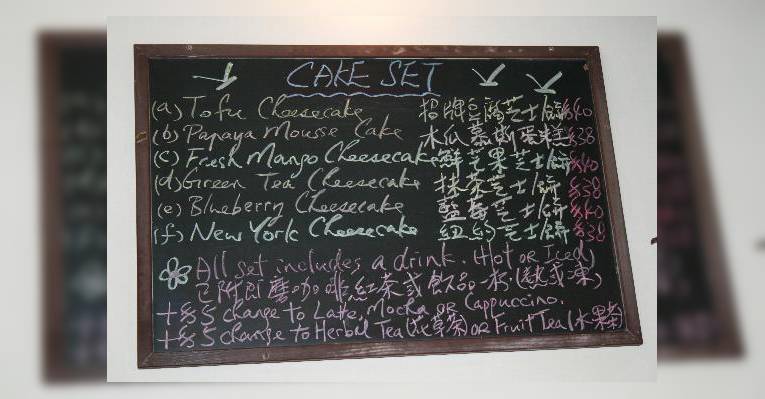 CAKE SET
(a) Tofu Cheesecake 招牌豆腐芝士餅 $40
(b) Papaya Mousse Cake 木瓜慕斯蛋糕 $38
(c) Fresh Mango Cheesecake 鮮芒果芝士餅 $40
(d) Green Tea Cheesecake 抹茶芝士餅 $38
(e) Blueberry Cheesecake 藍莓芝士餅 $40
(f) New York Cheesecake 紐約芝士餅 $38
All set includes a drink. (Hot or Iced)
已附即磨咖啡,紅茶或飲品一杯.(熱或凍)
+$5 change to Latte, Mocha or Cappuccino.
+$5 change to Herbal Tea (花草茶) or Fruit Tea (水果茶)